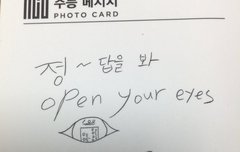 수능 메시지
PHOTO CARD
정~답을 봐
open your eyes